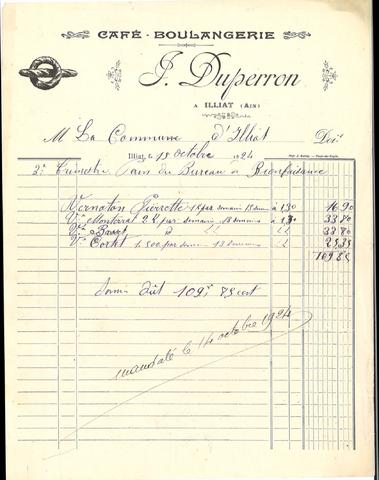 CAFÉ - BOULANGERIE
J. Duperron
A ILLIAT (AIN)
M La Commune d'Illiat Doit
Illiat, le 15 octobre 1924
3e Trimestre Pain du Bureau de Bienfaisance
Vernaton Pierrette 1 k par semaine 13 sem à 1.30 16.90
Ve Montéral 2 k par semaine 13 semaines à 1.30 33.80
Ve Brozt d° 33.80
Ve Cortet 1.500 par semaine 13 semaines 25.35
109.85
Somme Doit 109f 85 cent
mandaté le 14 octobre 1924